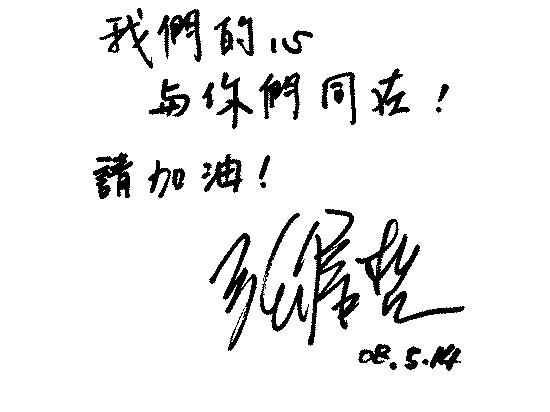 我們的心
与你們同在!
請加油!
08.5.14